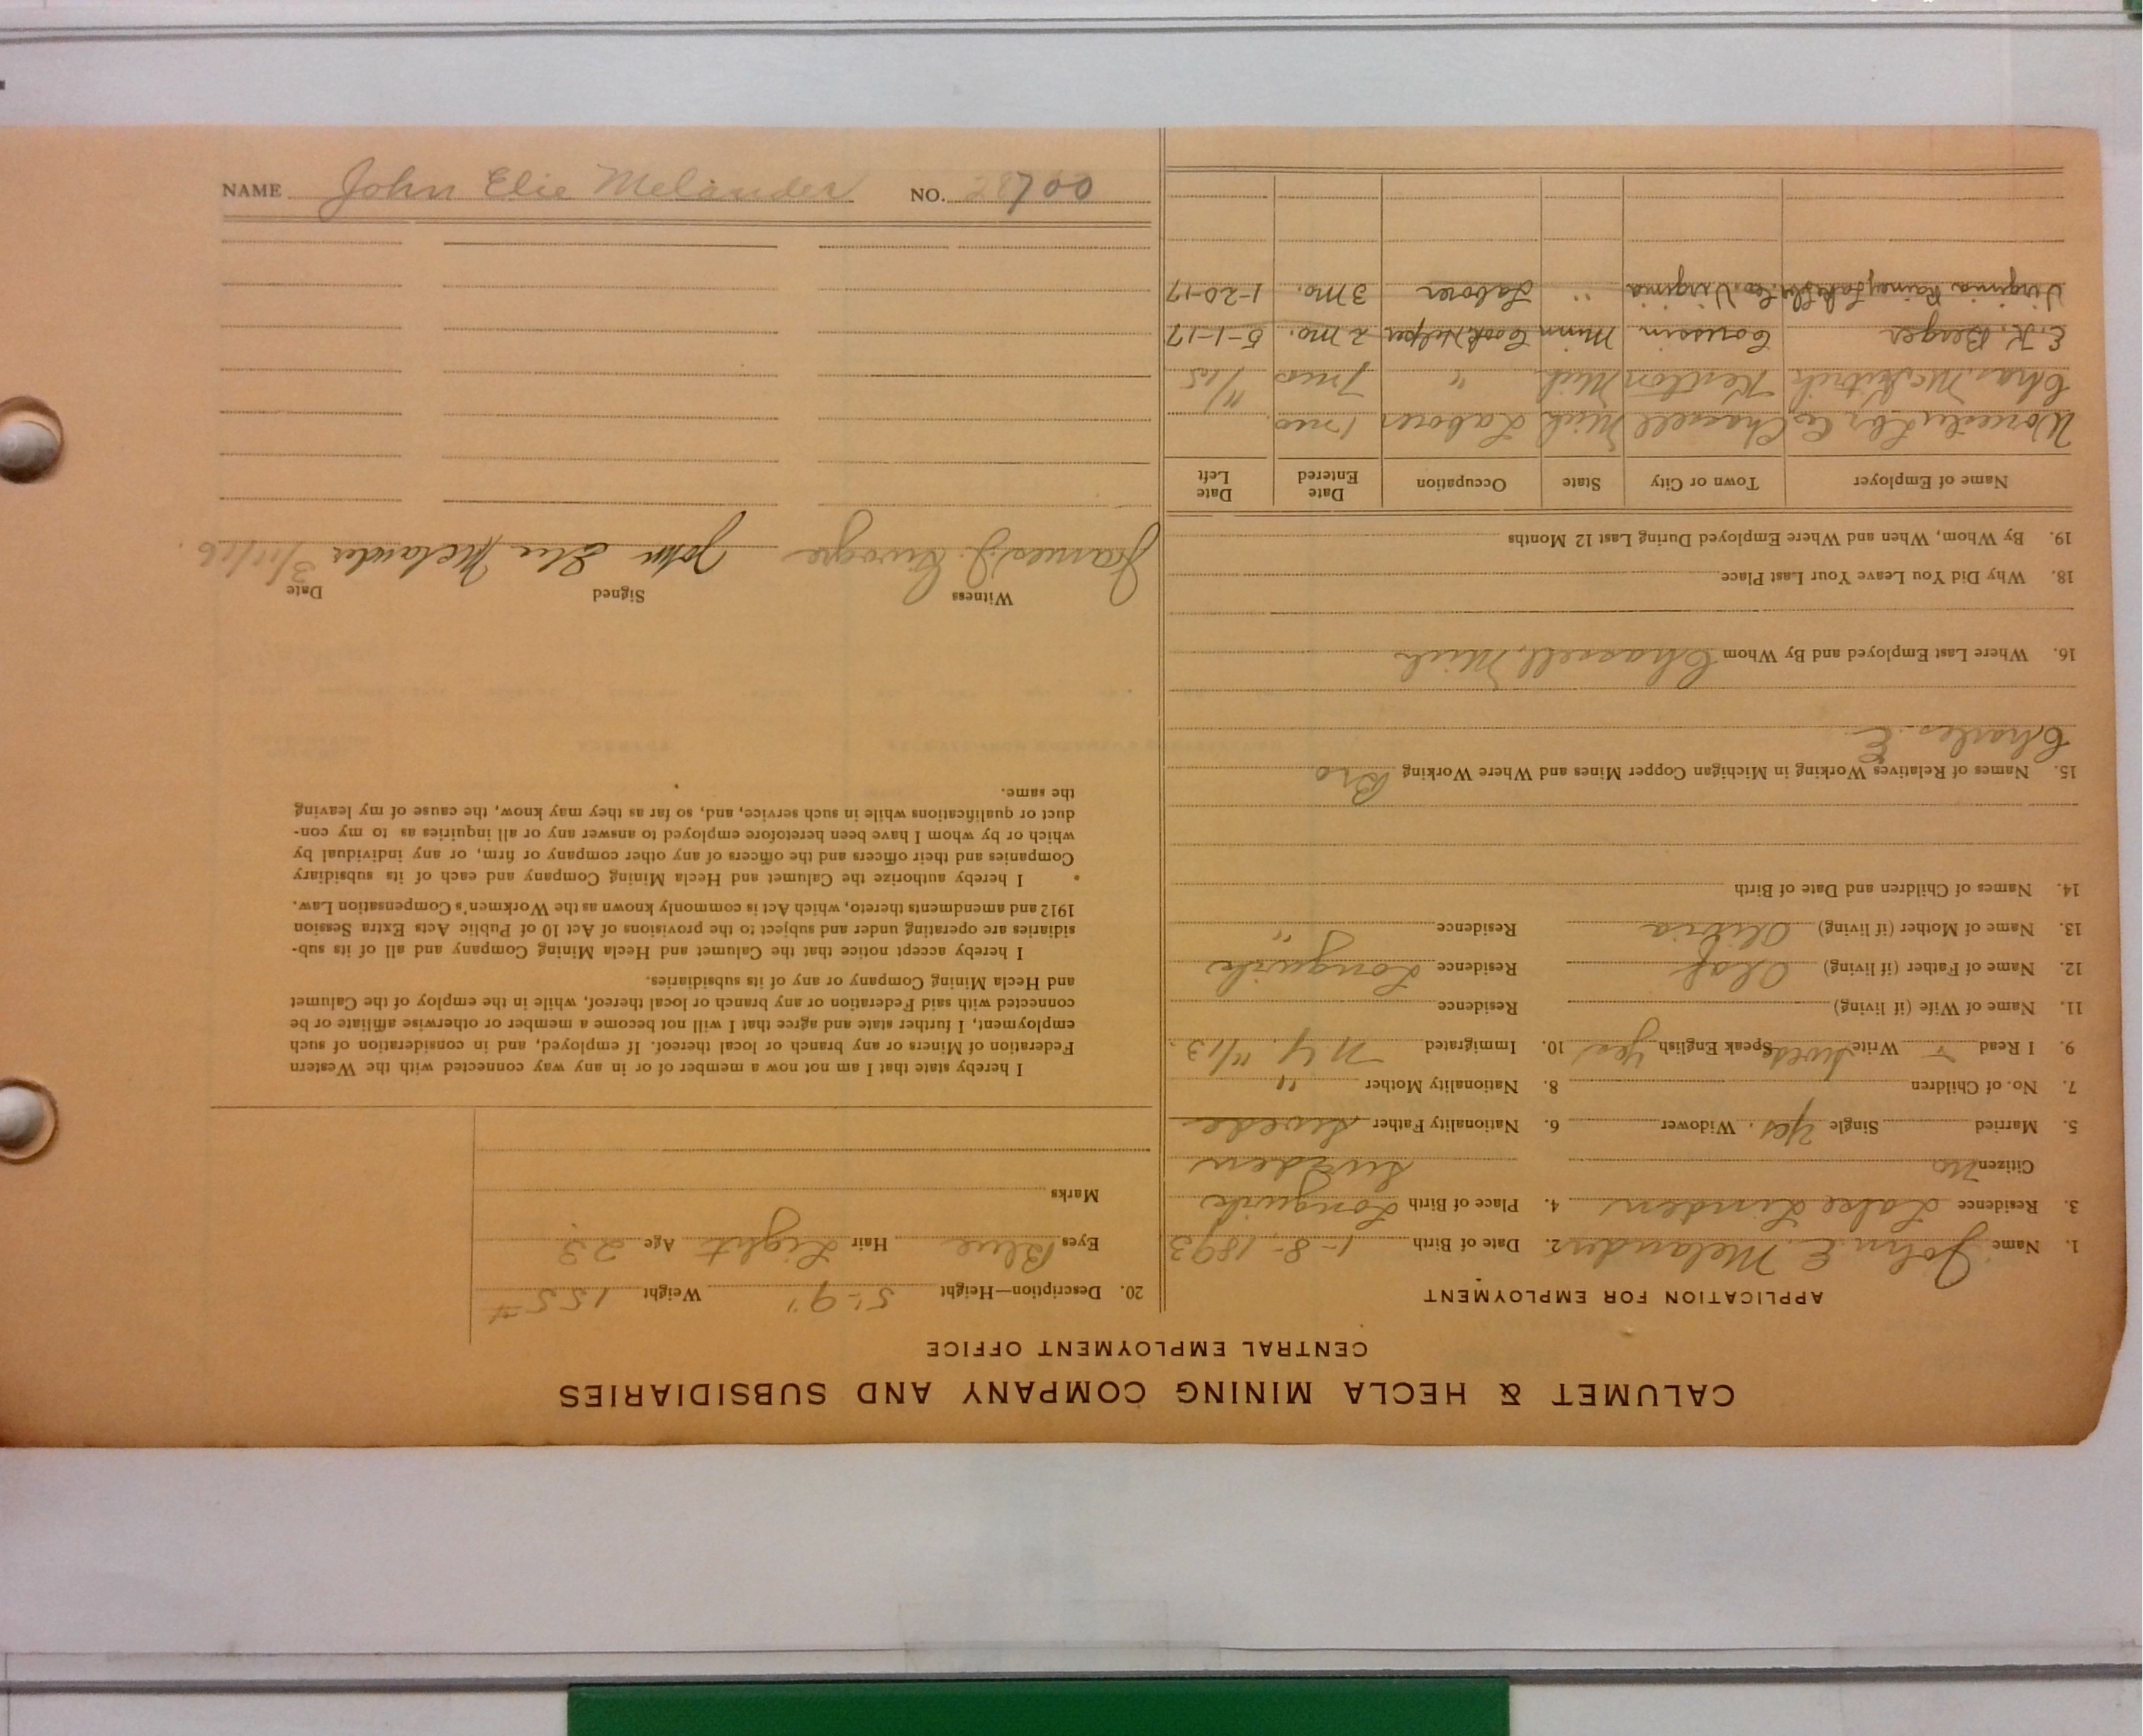 CALUMET & HECLA MINING COMPANY AND SUBSIDIARIES
CENTRAL EMPLOYMENT OFFICE
APPLICATION FOR EMPLOYMENT
1. Name John E. Melander 2. Date of Birth 1-8-1893
3. Residence Lake Linden 4. Place of Birth Longvik
Citizen No Sweden
5. Married Single yes. Widower 6. Nationality Father Swede
7. No. of Children 8. Nationality Mother "
9. I Read Write Swede Speak English yes 10. Immigrated N.Y. 11/13
11. Name of Wife (if living) Residence
12. Name of Father (if living) Olof Residence Longvik
13. Name of Mother (if living) Olivia Residence "
14. Names of Children and Date of Birth
15. Names of Relatives Working in Michigan Copper Mines and Where Working Bro
Charles E.
16. Where Last Employed and By Whom Chassell, Mich
18. Why Did You Leave Your Last Place
19. By Whom, When and Where Employed During Last 12 Months
Name of Employer Town or City State Occupation Date Entered Date Left
Worcester Lbr Co Chassell Mich Laborer 1 mo.
Chas. McKitrich Kenton Mich " 7 mos 11/15
E. K. Berger Coussin Minn Cook Helper 2 mo. 5-1-17
Virginia Rainey Lake Lbr. Co. Virginia " Laborer 3 mo. 1-20-17
20. Description—Height 5'-9" Weight 155#
Eyes Blue Hair Light Age 23
Marks
I hereby state that I am not now a member of or in any way connected with the Western
Federation of Miners or any branch or local thereof. If employed, and in consideration of such
employment, I further state and agree that I will not become a member or otherwise affiliate or be
connected with said Federation or any branch or local thereof, while in the employ of the Calumet
and Hecla Mining Company or any of its subsidiaries.
I hereby accept notice that the Calumet and Hecla Mining Company and all of its sub-
sidiaries are operating under and subject to the provisions of Act 10 of Public Acts Extra Session
1912 and amendments thereto, which Act is commonly known as the Workmen's Compensation Law.
I hereby authorize the Calumet and Hecla Mining Company and each of its subsidiary
Companies and their officers and the officers of any other company or firm, or any individual by
which or by whom I have been heretofore employed to answer any or all inquiries as to my con-
duct or qualifications while in such service, and, so far as they may know, the cause of my leaving
the same.
Witness Signed Date
James J. John Elie Melander 3/11/16
NAME John Elie Melander NO. 28700